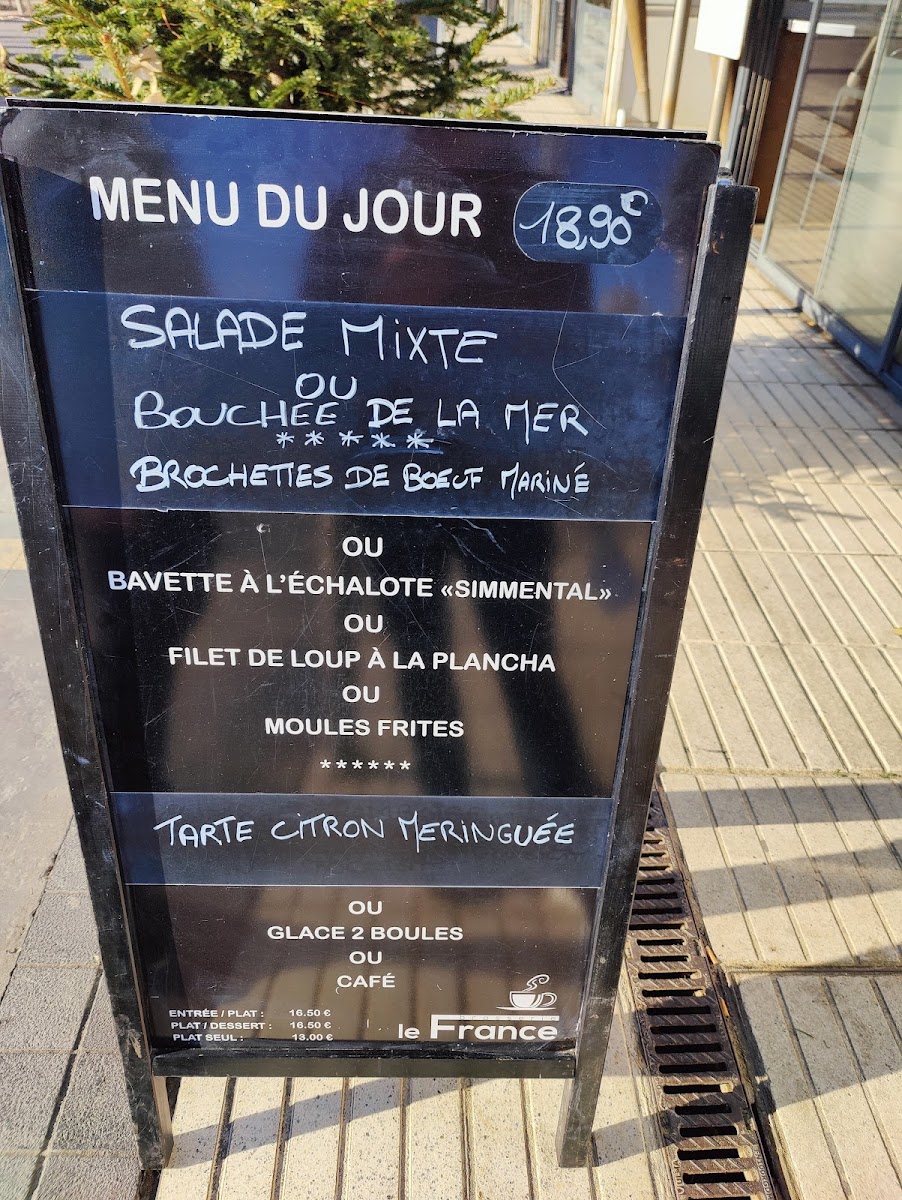 MENU DU JOUR 18,90€
SALADE MIXTE
OU
BOUCHÉE DE LA MER
*****
BROCHETTES DE BOEUF MARINÉ
OU
BAVETTE À L'ÉCHALOTE «SIMMENTAL»
OU
FILET DE LOUP À LA PLANCHA
OU
MOULES FRITES
******
TARTE CITRON MERINGUÉE
OU
GLACE 2 BOULES
OU
CAFÉ
ENTRÉE / PLAT : 16.50 €
PLAT / DESSERT : 16.50 €
PLAT SEUL : 13.00 €
brasserie
le France